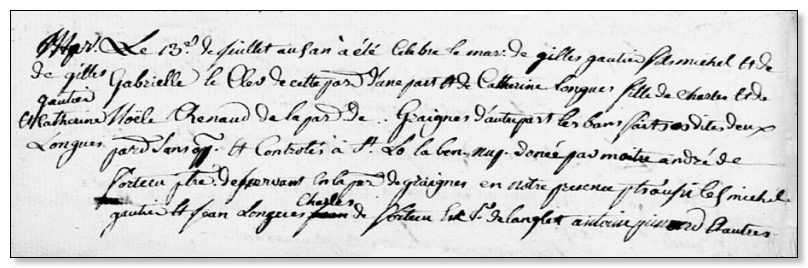 Mar. Le 13e de juillet ausan a été celebre le mar. de gilles gautier fils michel et de
de gilles gautier Gabrielle le Cler de cette par. d'une part et de Catherine Longues fille de charles et de
et Catherine Noële Renaud de la par. de Graignes d'autre part les bans faits es dites deux
Longues par. sans opp. et controlés à St. Lo la ben. nup. donée par maitre andré de
Fortecu ptre. desservant en la par. de graignes en notre presence presents michel
gautier et jean Longues Charles de fortecu Sr. de langlet antoine et autres